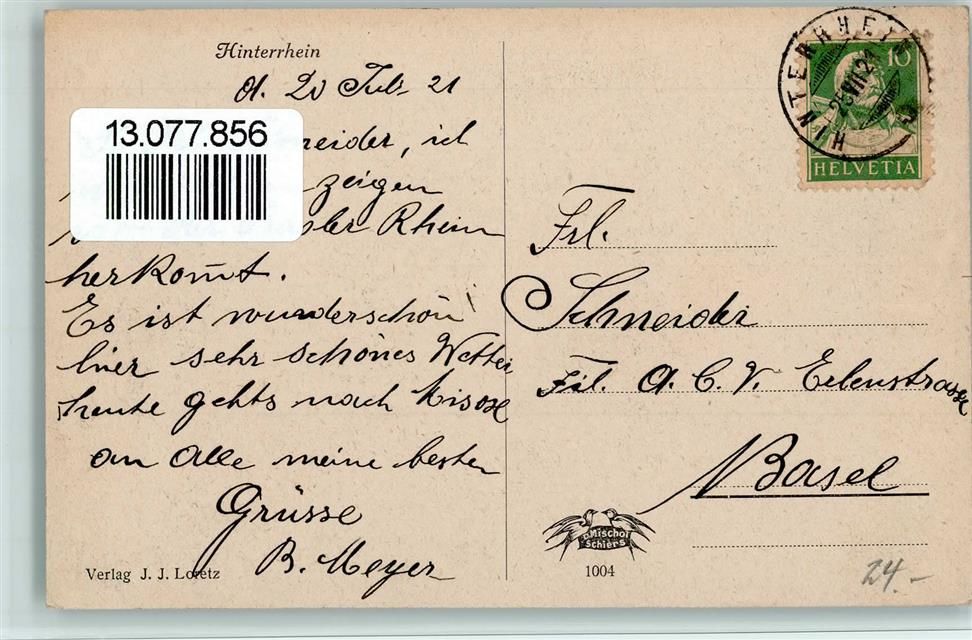 Hinterrhein
d. 20 Juli 21
13.077.856
neider, ich
zeigen
der Rhein
herkomt.
Es ist wunderschön!
hier sehr schönes Wetter
heute gehts nach Misox
an Alle meine besten
Grüsse
B. Meyer
Verlag J. J. Loretz
HINTERRHEIN
25 VII 21
10
HELVETIA
Frl.
Schneider
Fil. A. C. V. Erlenstrasse
Basel
Mischol
Schiers
1004
24.-